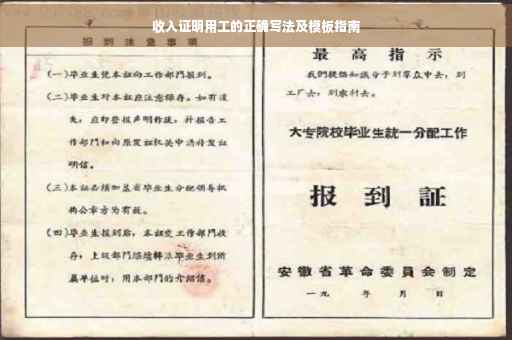 收入证明用工的正确写法及模板指南
报到注意事项
(一)毕业生凭本证向工作部门报到。
(二)毕业生对本证应注意保存。如有遗
失,应即登报声明作废,并报告工
作部门和向原发证机关申请补发证
明信。
(三)本证必须加盖省毕业生分配领导机
构公章方为有效。
(四)毕业生报到后,本证交工作部门收
存,上级部门继续转派毕业生到所
属单位时,用本部门的介绍信。
最高指示
我们提倡知识分子到群众中去,到
工厂去,到农村去。
大专院校毕业生統一分配工作
报到証
安徽省革命委員会制定
一九 年 月 日